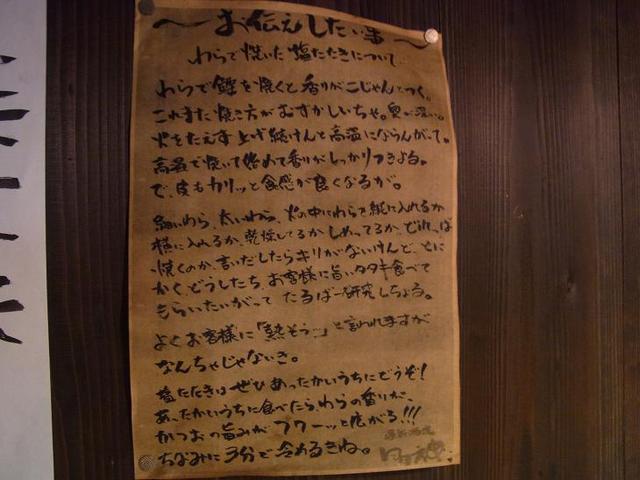 〜お伝えしたい事〜
わらで焼いた塩たたきについて
わらで鰹を焼くと香りがこじゃんとつく。
これまた焼き方がむずかしいちゃ。奥が深い。
火をたえず上げ続けんと高温にならんがって。
高温で焼いて始めて香りがしっかりつきよる。
で、皮もカリッと食感が良くなるが。
細いわら、太いわら、火の中にわらを縦に入れるか
横に入れるか、乾燥してるかしめってるか、どれっぱ
焼くのか、言いだしたらキリがないけんど、とに
かく、どうしたち、お客様に旨いタタキ食べて
もらいたいがって たるばー研究しちょる。
よくお客様に「熱そう…」と言われますが
なんちゃじゃないき。
塩たたきはぜひあったかいうちにどうぞ！
あったかいうちに食べたら、わらの香りが、
かつおの旨みがフワーッと広がる!!!
ちなみに3分で冷めるきね。